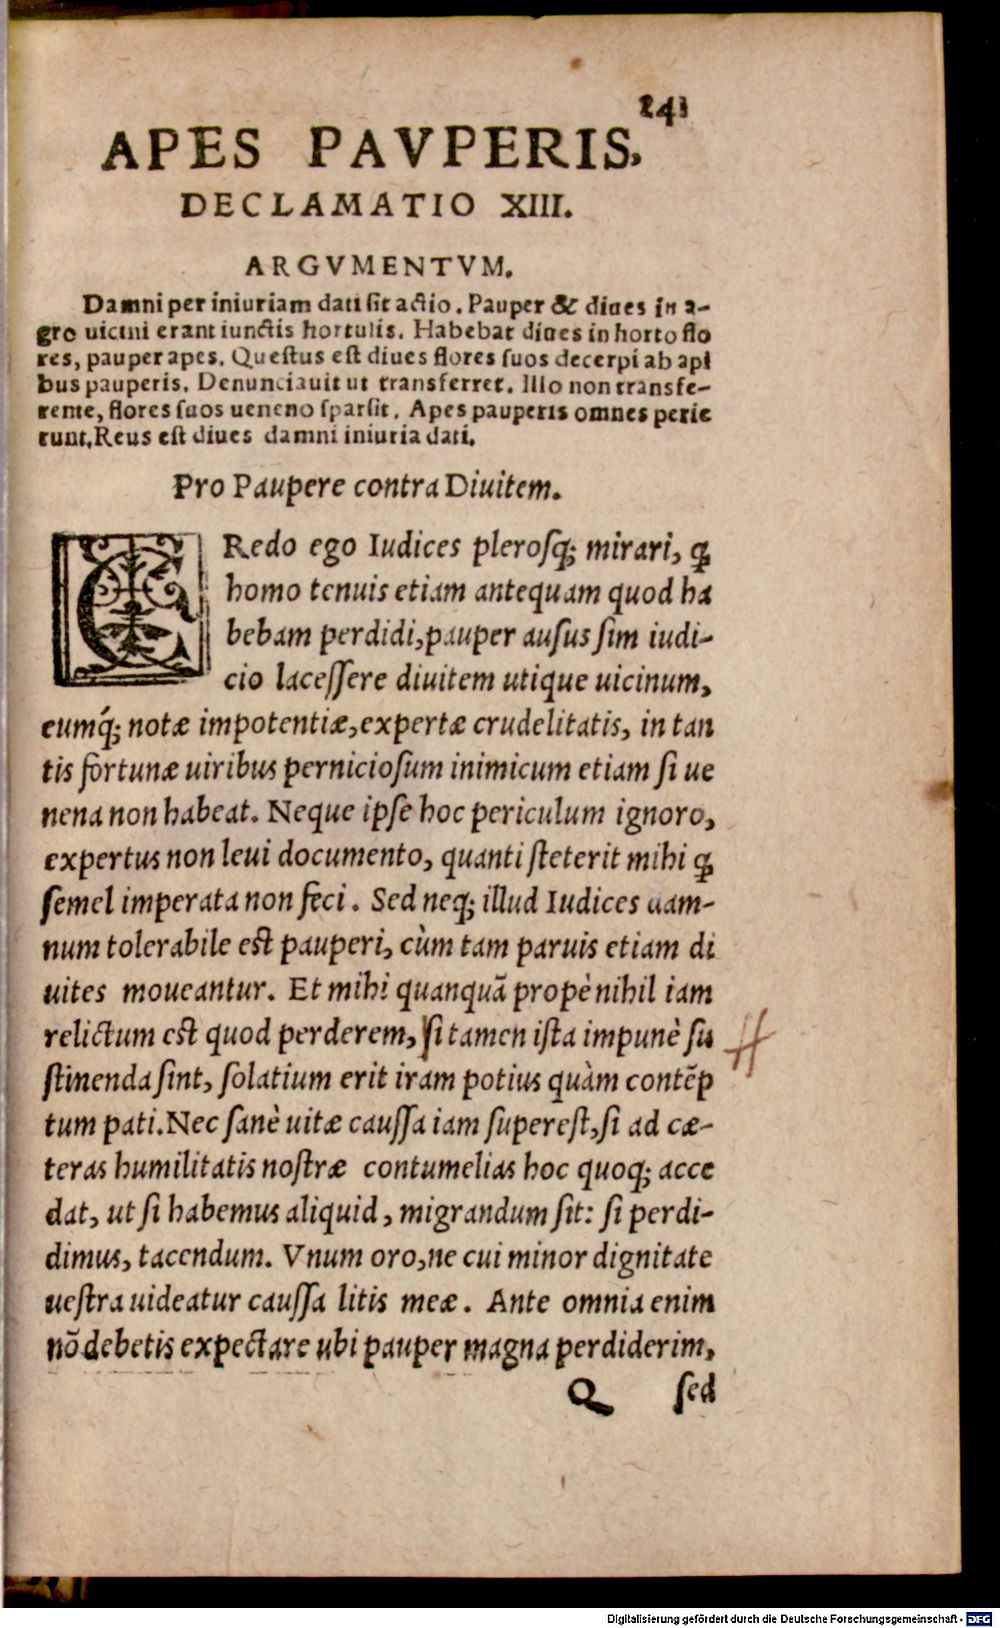 241
APES PAVPERIS,
DECLAMATIO XIII.
ARGVMENTVM.
Damni per iniuriam dati sit actio. Pauper & diues in a-
gro uicini erant iunctis hortulis. Habebat diues in horto flo
res, pauper apes. Questus est diues flores suos decerpi ab api
bus pauperis. Denunciauit ut transferret. Illo non transfe-
rente, flores suos ueneno sparsit. Apes pauperis omnes perie
runt. Reus est diues damni iniuria dati.
Pro Paupere contra Diuitem.
CRedo ego Iudices plerosq; mirari, ꝙ
homo tenuis etiam antequam quod ha
bebam perdidi, pauper ausus sim iudi-
cio lacessere diuitem utique uicinum,
eumq́; notæ impotentiæ, expertæ crudelitatis, in tan
tis fortunæ uiribus perniciosum inimicum etiam si ue
nena non habeat. Neque ipse hoc periculum ignoro,
expertus non leui documento, quanti steterit mihi ꝙ
semel imperata non feci. Sed neq; illud Iudices dam-
num tolerabile est pauperi, cùm tam paruis etiam di
uites moueantur. Et mihi quanquã propè nihil iam
relictum est quod perderem, si tamen ista impunè su
stinenda sint, solatium erit iram potius quàm contẽp
tum pati. Nec sanè uitæ caussa iam superest, si ad cæ-
teras humilitatis nostræ contumelias hoc quoq; acce
dat, ut si habemus aliquid, migrandum sit: si perdi-
dimus, tacendum. Vnum oro, ne cui minor dignitate
uestra uideatur caussa litis meæ. Ante omnia enim
nõ debetis expectare ubi pauper magna perdiderim,
Q sed
Digitalisierung gefördert durch die Deutsche Forschungsgemeinschaft - DFG